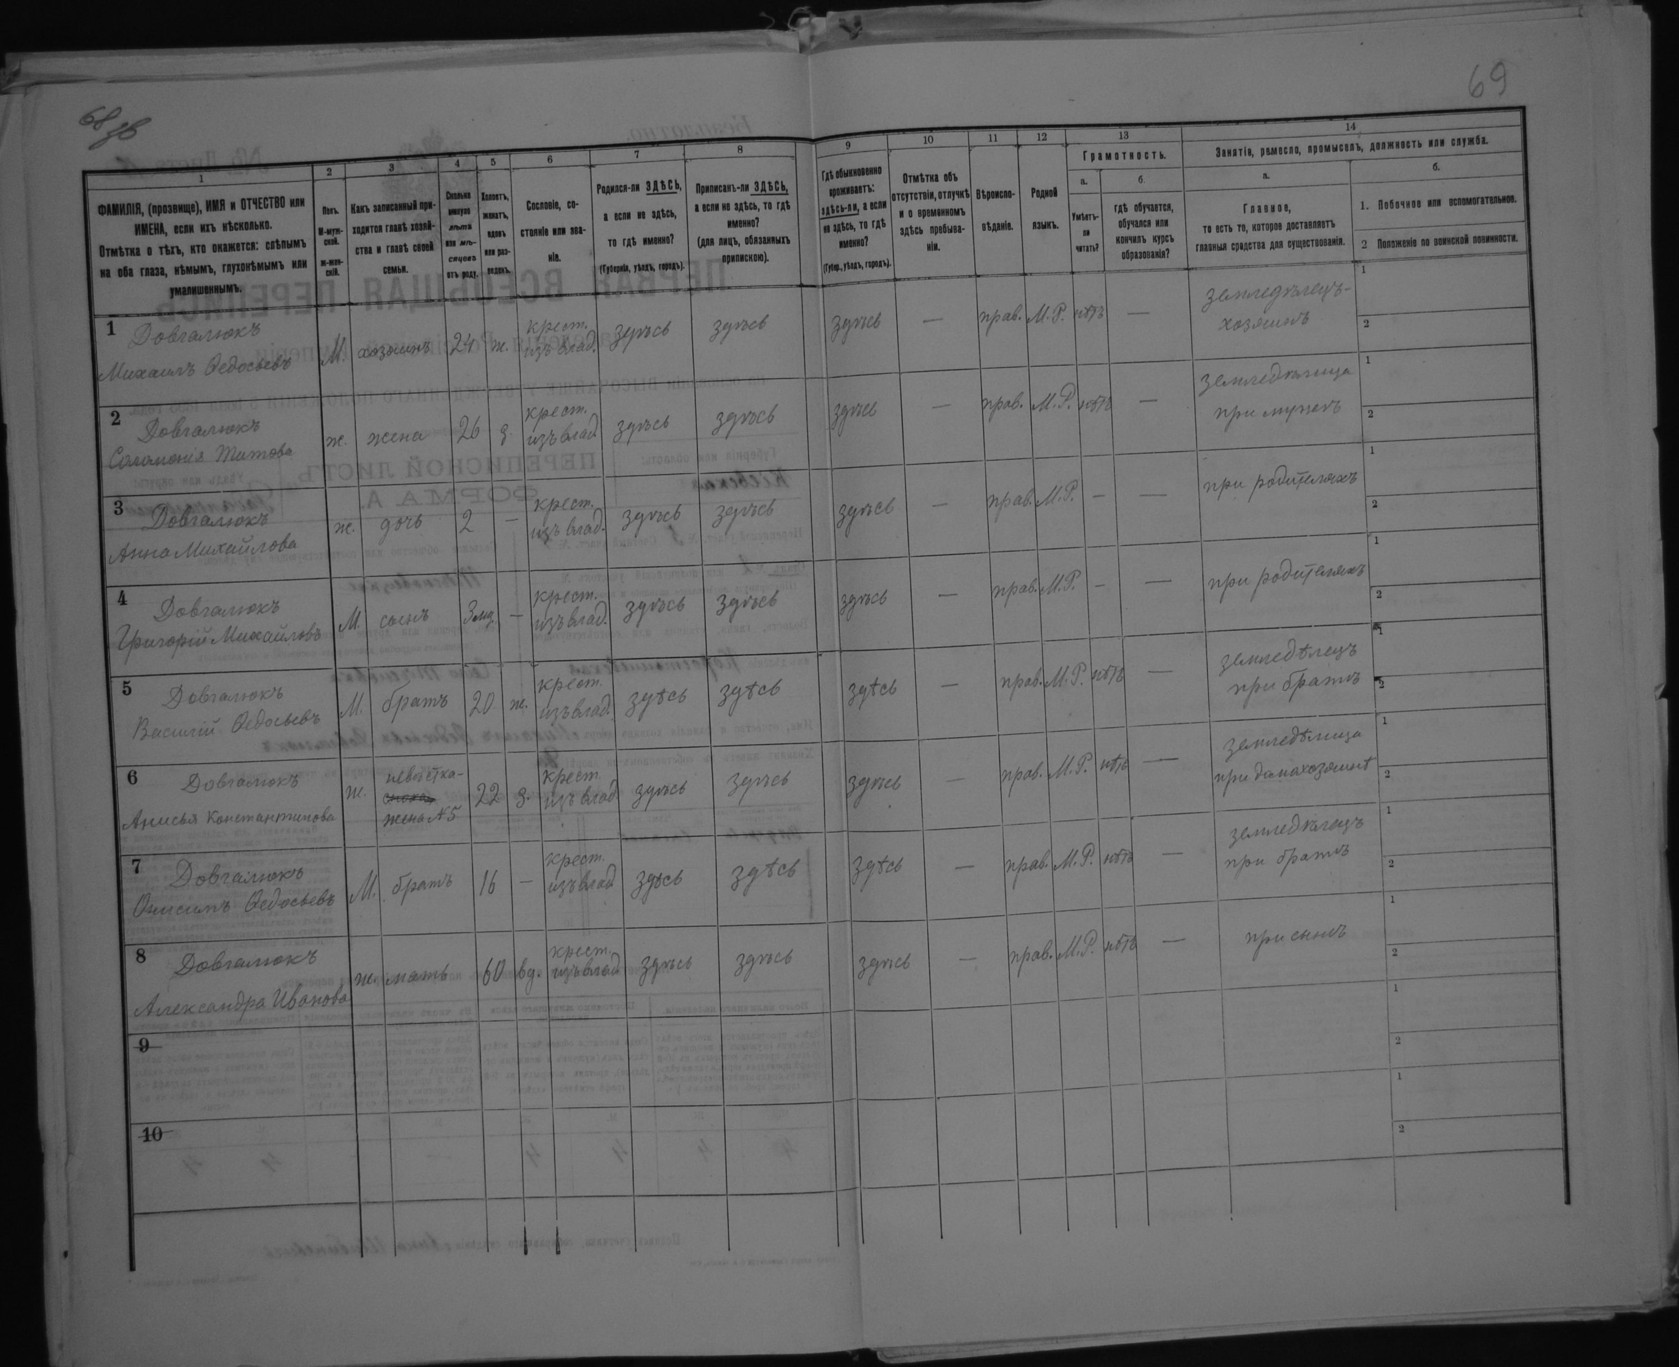 68 зв
69
1
2
3
4
5
6
7
8
9
10
11
12
13
14
ФАМИЛІЯ, (прозвище), ИМЯ и ОТЧЕСТВО или
ИМЕНА, если ихъ нѣсколько.
Отмѣтка о тѣхъ, кто окажется: слѣпымъ
на оба глаза, нѣмымъ, глухонѣмымъ или
умалишеннымъ.
Полъ.
М-муж-
ской.
ж-жен-
скій.
Какъ записанный при-
ходится главѣ хозяй-
ства и главѣ своей
семьи.
Сколько
минуло
лѣтъ
или мѣ-
сяцевъ
отъ роду.
Холостъ,
женатъ,
вдовъ
или раз-
веденъ.
Сословіе, со-
стояніе или зва-
ніе.
Родился-ли ЗДѢСЬ,
а если не здѣсь,
то гдѣ именно?
(Губернія, уѣздъ, городъ).
Приписанъ-ли ЗДѢСЬ,
а если не здѣсь, то гдѣ
именно?
(для лицъ, обязанныхъ
припискою).
Гдѣ обыкновенно
проживаетъ:
здѣсь-ли, а если
не здѣсь, то гдѣ
именно?
(Губер., уѣздъ, городъ).
Отмѣтка объ
отсутствіи, отлучкѣ
и о временномъ
здѣсь пребыва-
ніи.
Вѣроиспо-
вѣданіе.
Родной
языкъ.
Грамотность.
а.
Умѣетъ-
ли
читать?
б.
гдѣ обучается,
обучался или
кончилъ курсъ
образованія?
Занятіе, ремесло, промыселъ, должность или служба.
а.
Главное,
то есть то, которое доставляетъ
главныя средства для существованія.
б.
1. Побочное или вспомогательное.
2 Положеніе по воинской повинности.
1 Довгалюкъ
Михаилъ Ѳедосьевъ М. хозяинъ 24 ж. крест. изъ влад. здѣсь здѣсь здѣсь — прав. М.Р. нѣтъ — земледѣлецъ-
хозяинъ 1 2
2 Довгалюкъ
Соломонія Титова ж. жена 26 з. крест. изъ влад. здѣсь здѣсь здѣсь — прав. М.Р. нѣтъ — земледѣлица
при мужѣ 1 2
3 Довгалюкъ
Анна Михайлова ж. дочь 2 — крест. изъ влад. здѣсь здѣсь здѣсь — прав. М.Р. — — при родителяхъ 1 2
4 Довгалюкъ
Григорій Михайловъ М. сынъ 3 мѣс. — крест. изъ влад. здѣсь здѣсь здѣсь — прав. М.Р. — — при родителяхъ 1 2
5 Довгалюкъ
Василій Ѳедосьевъ М. братъ 20 ж. крест. изъ влад. здѣсь здѣсь здѣсь — прав. М.Р. нѣтъ — земледѣлецъ
при братѣ 1 2
6 Довгалюкъ
Анисья Константинова ж. невѣстка-
жена №5 22 з. крест. изъ влад. здѣсь здѣсь здѣсь — прав. М.Р. нѣтъ — земледѣлица
при домохозяинѣ 1 2
7 Довгалюкъ
Онисимъ Ѳедосьевъ М. братъ 16 — крест. изъ влад. здѣсь здѣсь здѣсь — прав. М.Р. нѣтъ — земледѣлецъ
при братѣ 1 2
8 Довгалюкъ
Александра Иванова ж. мать 60 вд. крест. изъ влад. здѣсь здѣсь здѣсь — прав. М.Р. нѣтъ — при сынѣ 1 2
9 1 2
10 1 2